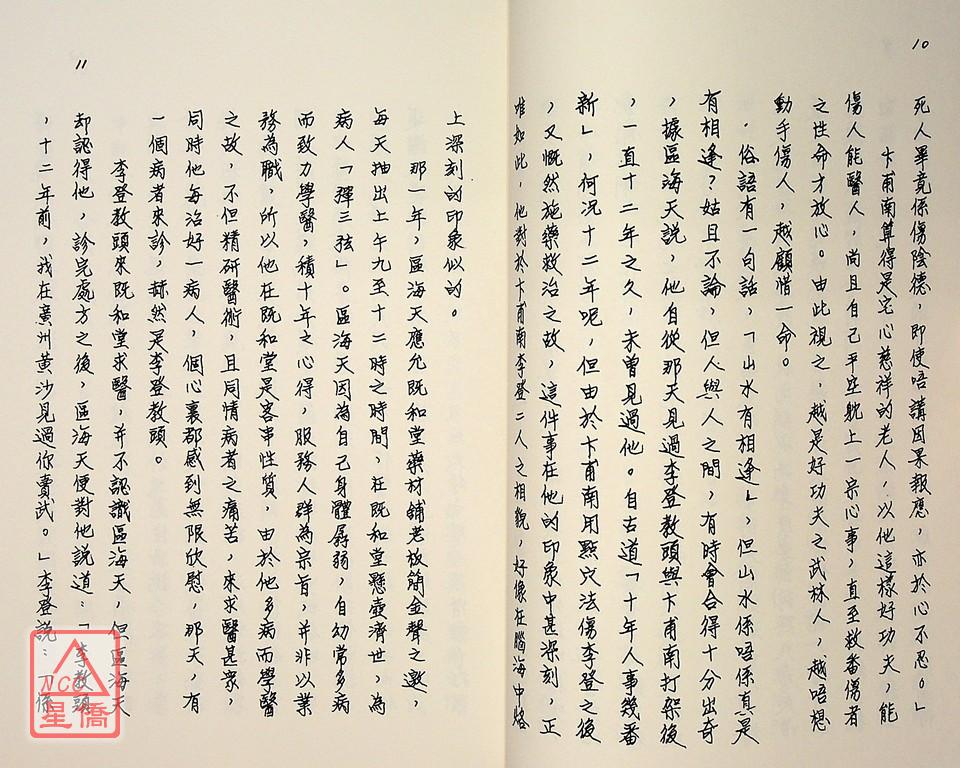 10
死人畢竟係傷陰德，即使唔講因果報應，亦於心不忍。」
卞甫南算得是宅心慈祥的老人，以他這樣好功夫，能
傷人能醫人，尚且自己平空躭上一宗心事，直至救番傷者
之性命才放心。由此視之，越是好功夫之武林人，越唔想
動手傷人，越顧惜一命。
．俗語有一句話，「山水有相逢」，但山水係唔係真是
有相逢？姑且不論，但人與人之間，有時會合得十分出奇
，據區海天説，他自從那天見過李登教頭與卞甫南打架後
，一直十二年之久，未曾見過他。自古道「十年人事幾番
新」，何況十二年呢，但由於卞甫南用點穴法傷李登之後
，又慨然施藥救治之故，這件事在他的印象中甚深刻，正
唯如此，他對於卞甫南李登二人之相貌，好像在腦海中烙
11
上深刻的印象似的。
那一年，區海天應允既和堂藥材舖老板簡金聲之邀，
每天抽出上午九至十二時之時間，在既和堂懸壺濟世，為
病人「彈三弦」。區海天因為自己身體孱弱，自幼常多病
而致力學醫，積十年之心得，服務人群為宗旨，并非以業
務為職，所以他在既和堂是客串性質，由於他多病而學醫
之故，不但精研醫術，且同情病者之痛苦，來求醫甚衆，
同時他每治好一病人，個心裏都感到無限欣慰，那天，有
一個病者來診，赫然是李登教頭。
李登教頭來既和堂求醫，并不認識區海天，但區海天
却認得他，診完處方之後，區海天便對他説道：「李教頭
，十二年前，我在廣州黃沙見過你賣武。」李登説：「係
NCC
星僑